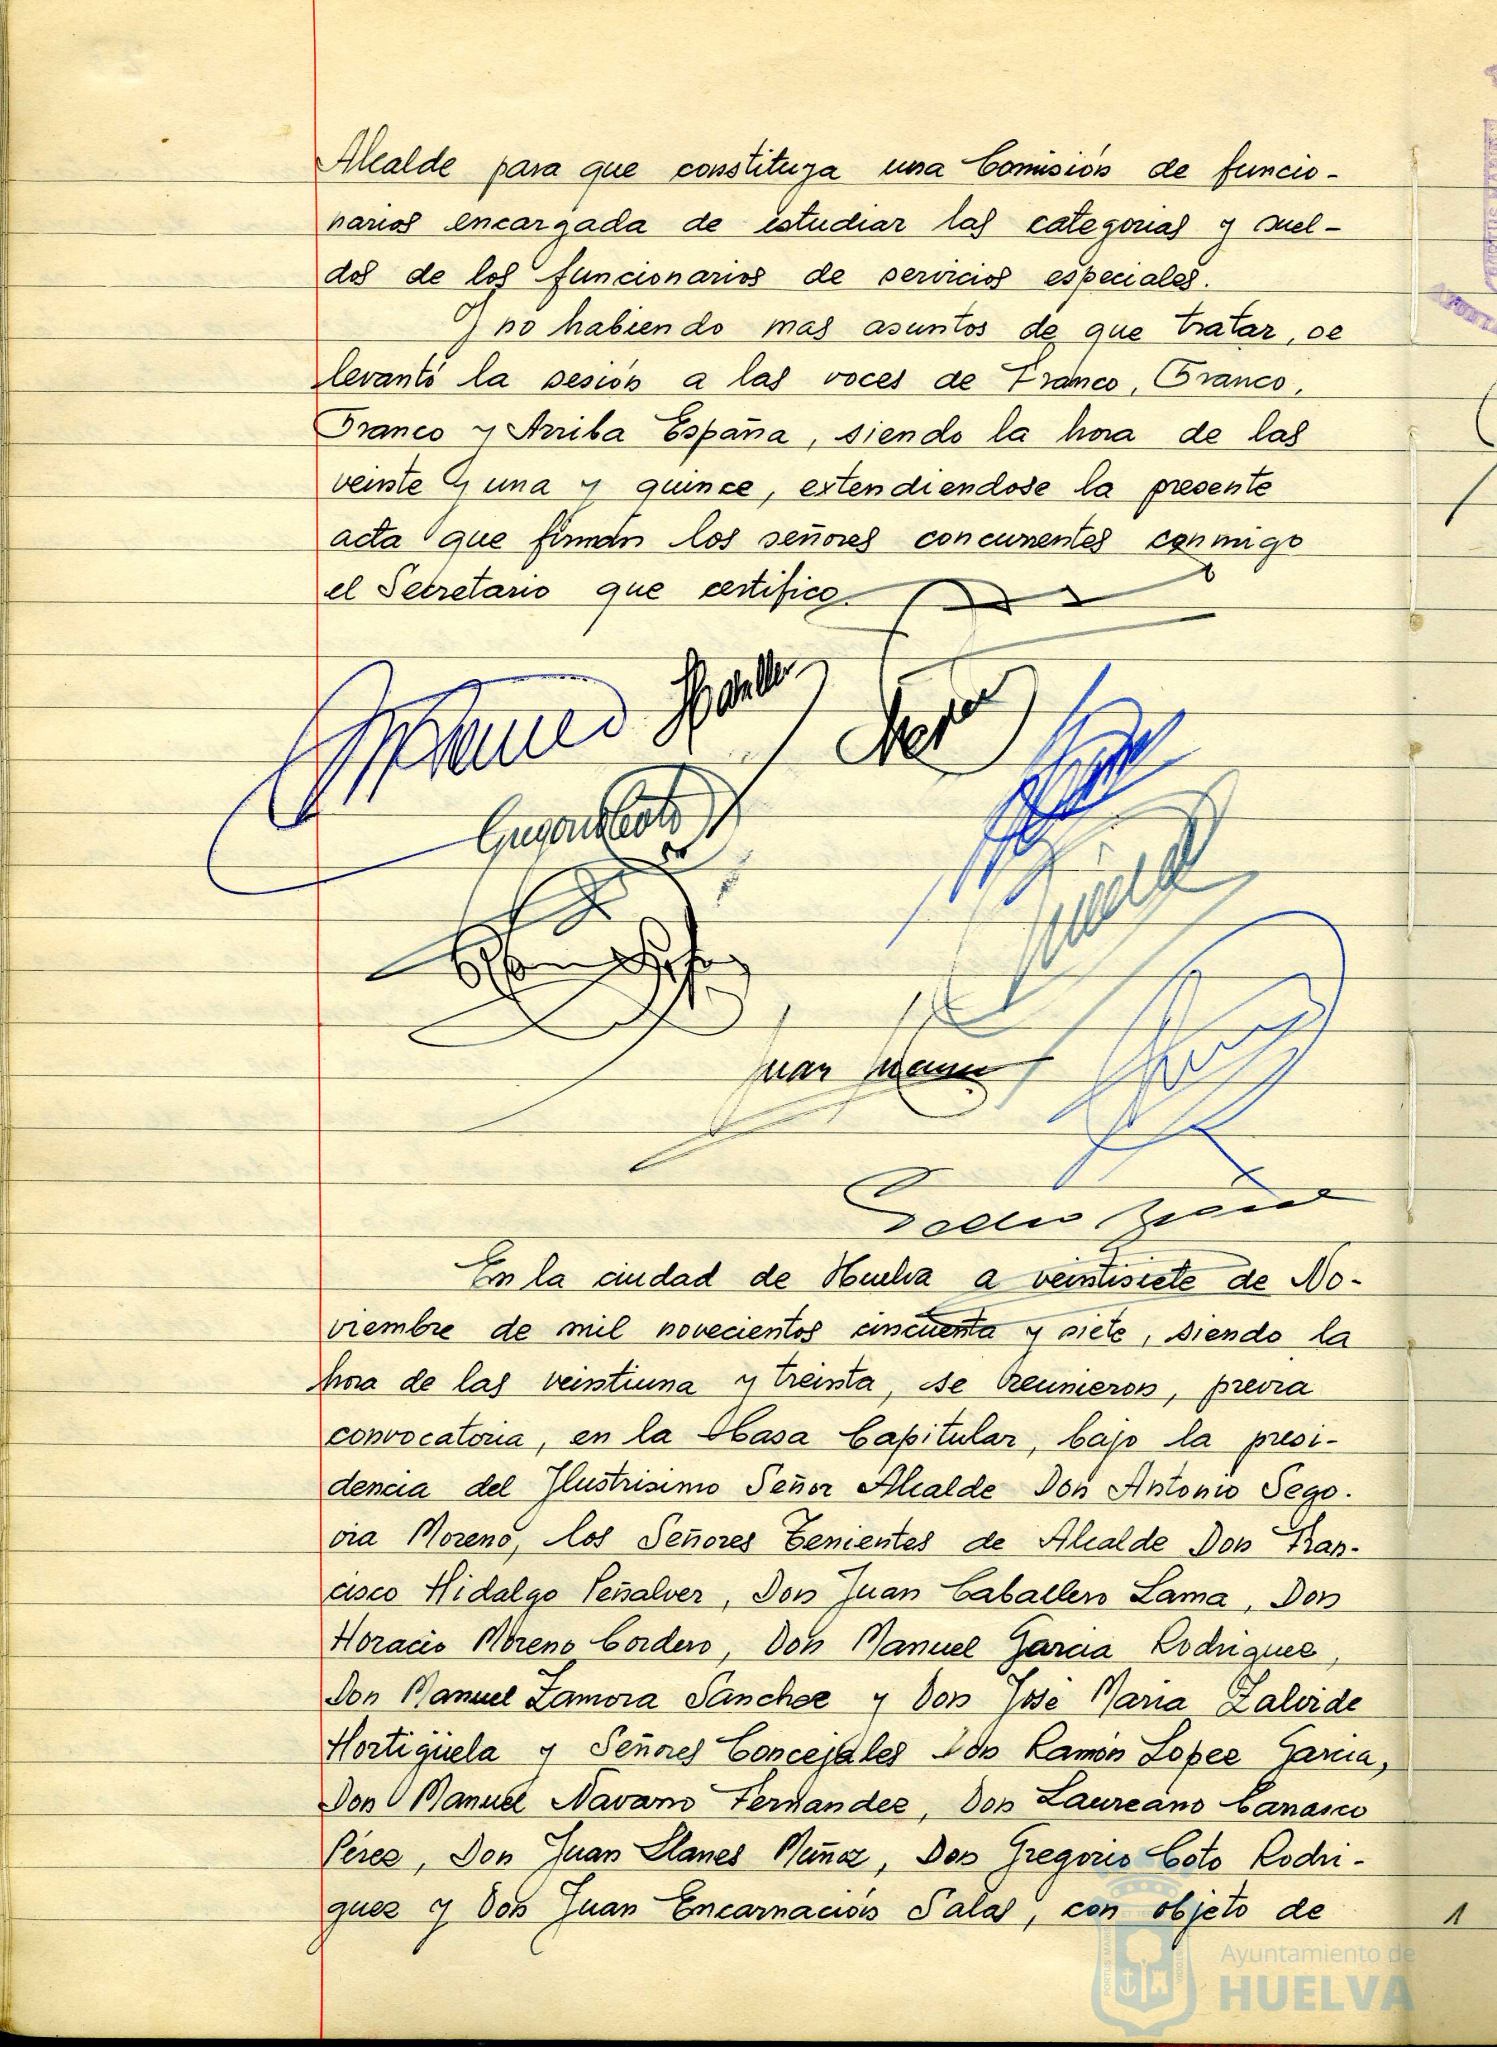 Alcalde para que constituya una Comisión de funcio-
narios encargada de estudiar las categorias y suel-
dos de los funcionarios de servicios especiales.
Y no habiendo mas asuntos de que tratar, se
levantó la sesión a las voces de Franco, Franco,
Franco y Arriba España, siendo la hora de las
veinte y una y quince, extendiendose la presente
acta que firman los señores concurrentes conmigo
el Secretario que certifico.
Gregorio Coto
Juan Llanes
En la ciudad de Huelva a veintisiete de No-
viembre de mil novecientos cincuenta y siete, siendo la
hora de las veintiuna y treinta, se reunieron, previa
convocatoria, en la Casa Capitular, bajo la presi-
dencia del Ilustrisimo Señor Alcalde Don Antonio Sego-
via Moreno, los Señores Tenientes de Alcalde Don Fran-
cisco Hidalgo Peñalver, Don Juan Caballero Lama, Don
Horacio Moreno Cordero, Don Manuel Garcia Rodriguez,
Don Manuel Zamora Sanchez y Don José Maria Zalvide
Hortigüela y Señores Concejales Don Ramón Lopez Garcia,
Don Manuel Navarro Fernandez, Don Laureano Carrasco
Pérez, Don Juan Llanes Muñoz, Don Gregorio Coto Rodri-
guez y Don Juan Encarnación Salas, con objeto de
Ayuntamiento de
HUELVA